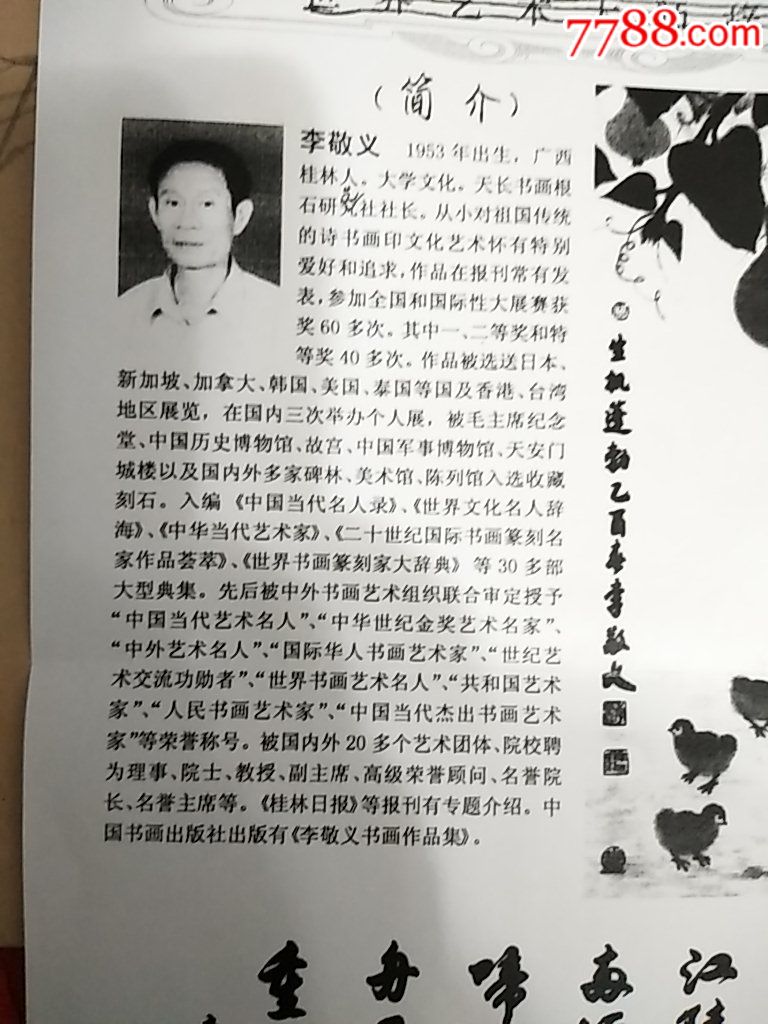 7788.com
（简介）
李敬义 1953年出生，广西
桂林人。大学文化。天长书画根
石研究社社长。从小对祖国传统
的诗书画印文化艺术怀有特别
爱好和追求，作品在报刊常有发
表，参加全国和国际性大展赛获
奖60多次。其中一、二等奖和特
等奖40多次。作品被选送日本、
新加坡、加拿大、韩国、美国、泰国等国及香港、台湾
地区展览，在国内三次举办个人展，被毛主席纪念
堂、中国历史博物馆、故宫、中国军事博物馆、天安门
城楼以及国内外多家碑林、美术馆、陈列馆入选收藏
刻石。入编《中国当代名人录》、《世界文化名人辞
海》、《中华当代艺术家》、《二十世纪国际书画篆刻名
家作品荟萃》、《世界书画篆刻家大辞典》等30多部
大型典集。先后被中外书画艺术组织联合审定授予
“中国当代艺术名人”、“中华世纪金奖艺术名家”、
“中外艺术名人”、“国际华人书画艺术家”、“世纪艺
术交流功勋者”、“世界书画艺术名人”、“共和国艺术
家”、“人民书画艺术家”、“中国当代杰出书画艺术
家”等荣誉称号。被国内外20多个艺术团体、院校聘
为理事、院士、教授、副主席、高级荣誉顾问、名誉院
长、名誉主席等。《桂林日报》等报刊有专题介绍。中
国书画出版社出版有《李敬义书画作品集》。
生机蓬勃乙酉春李敬义
江
啼
舟
重